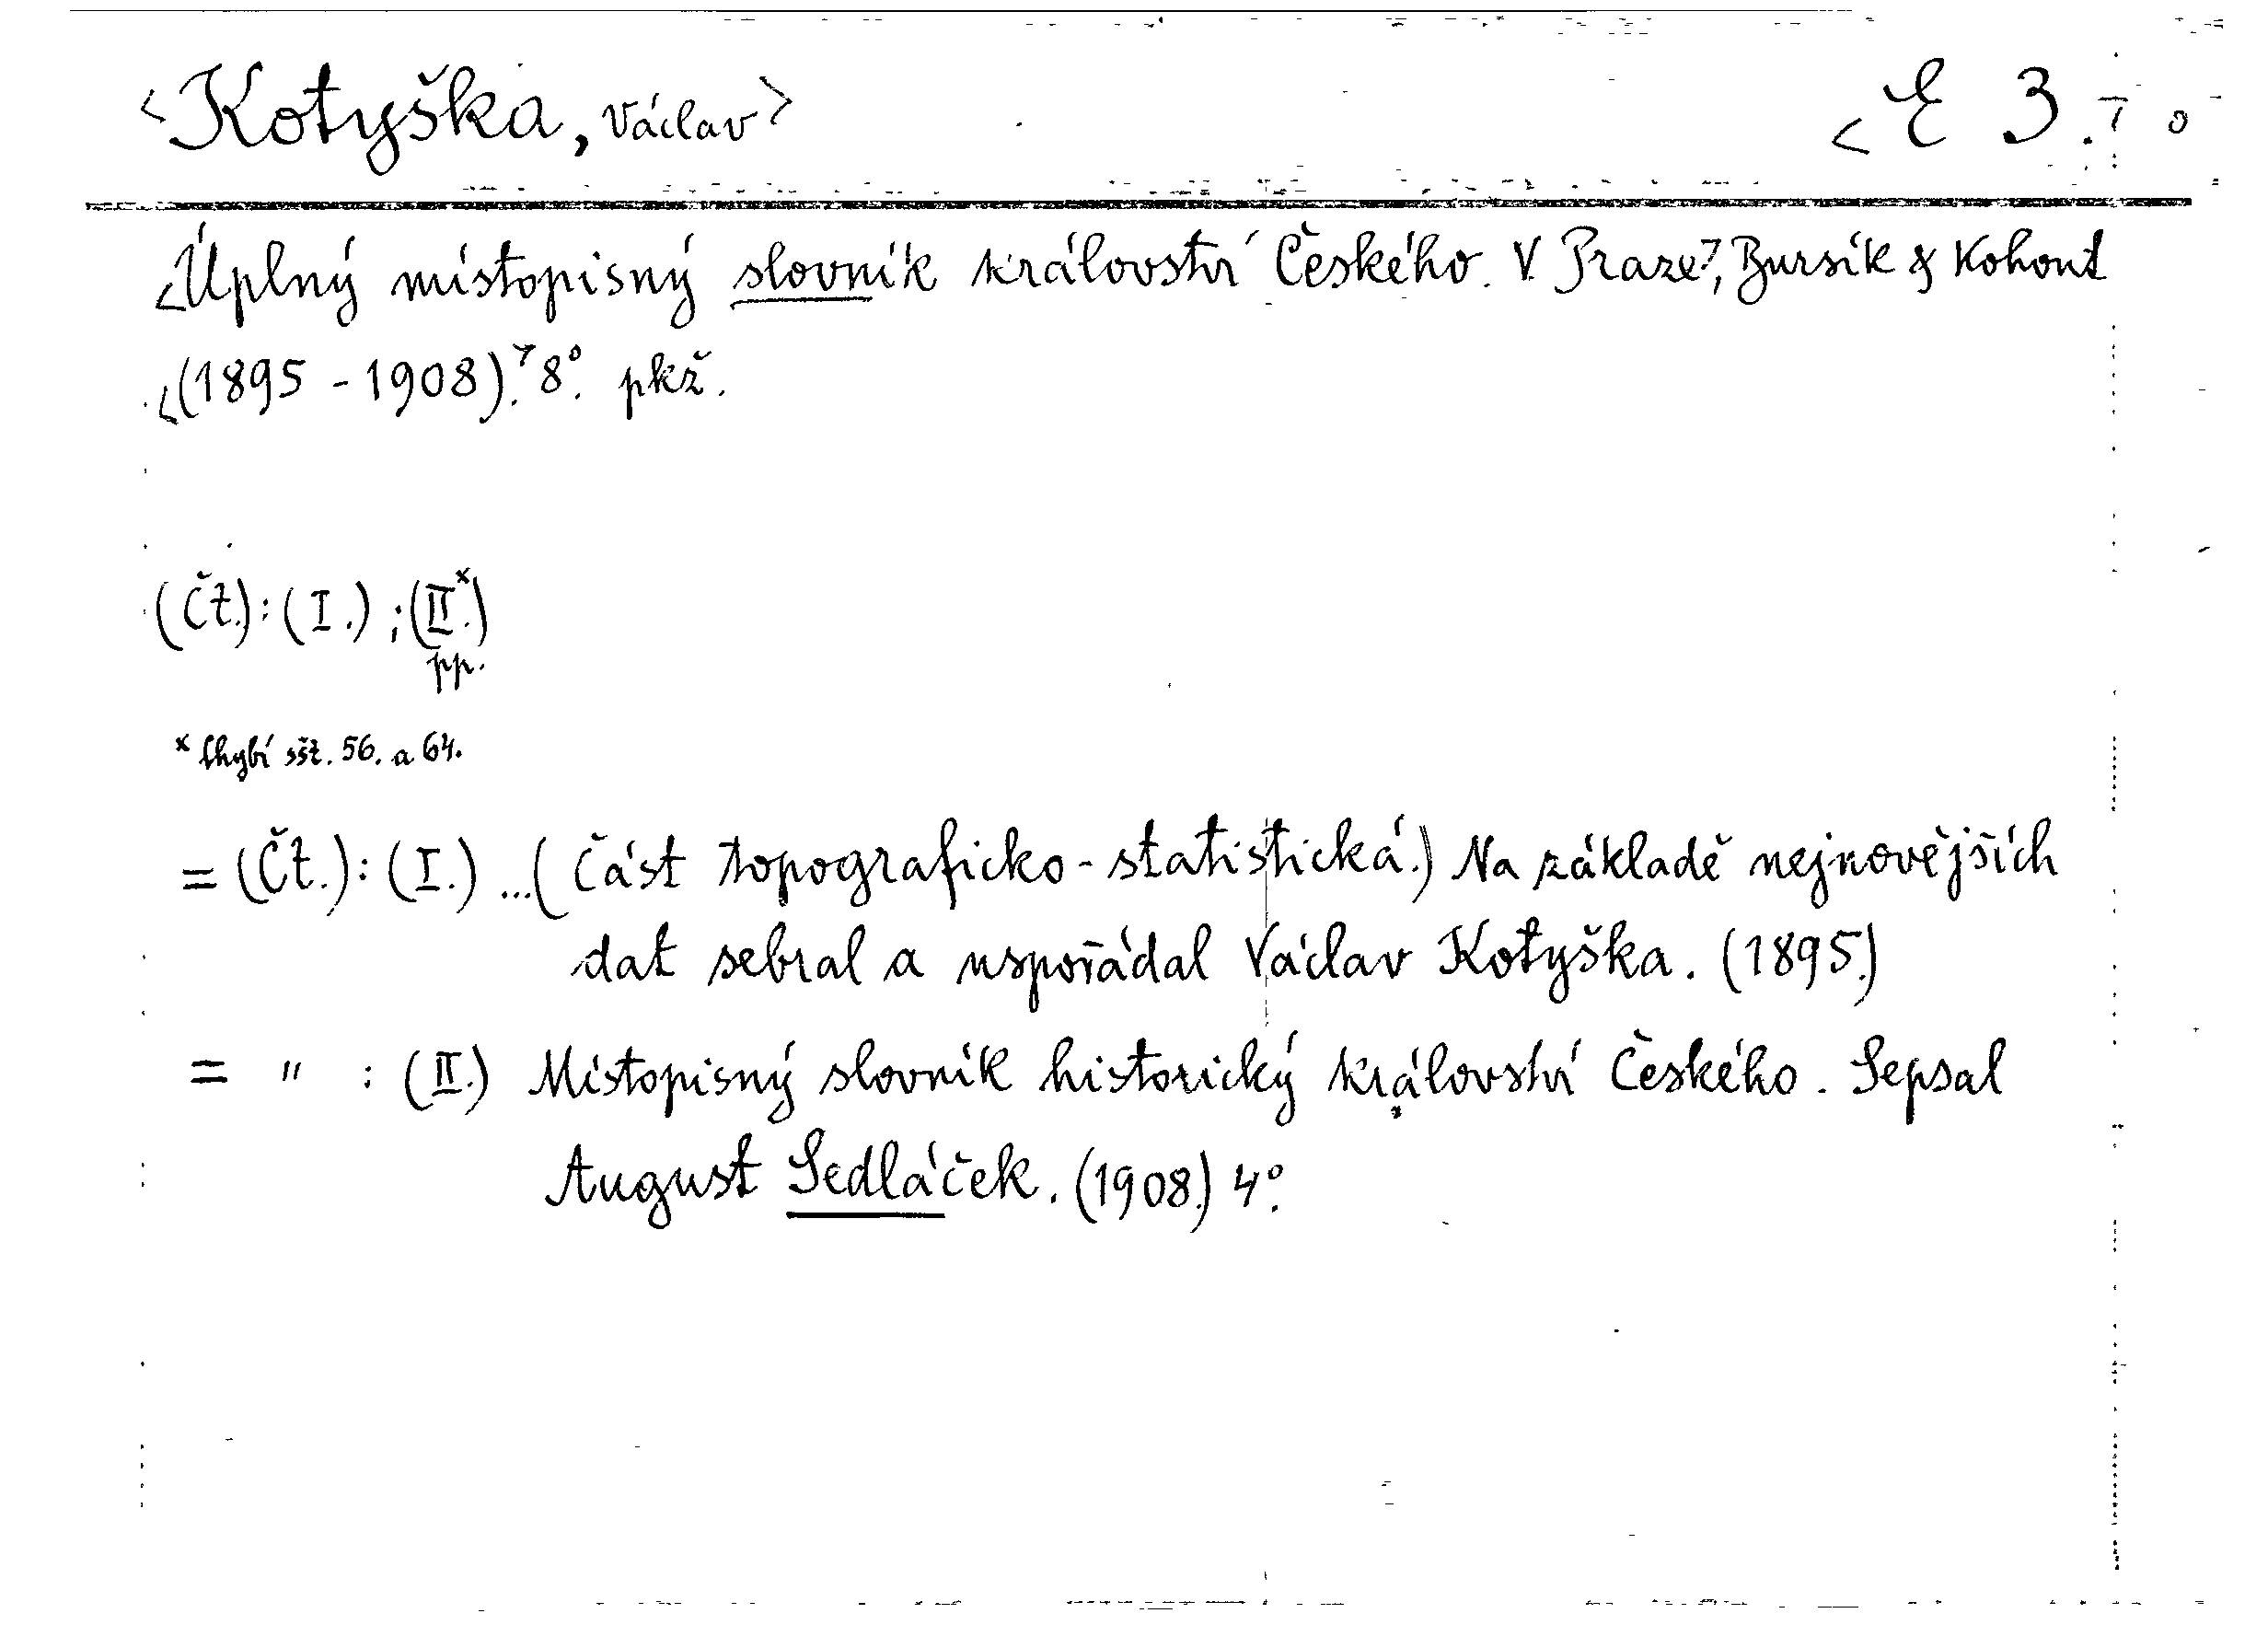 <Kotyška, Václav> <E 3.7
<Úplný místopisný slovník království Českého. V Praze?, Bursík & Kohout
<(1895 - 1908).> 8°. pkž.
(Čt.): (I.) ; (II.ˣ)
pp.
ˣ Chybí sšt. 56. a 64.
= (Čt.): (I.) ... (Část topograficko-statistická.) Na základě nejnovějších
dat sebral a uspořádal Václav Kotyška. (1895.)
= " : (II.) Místopisný slovník historický království Českého. Sepsal
August Sedláček. (1908.) 4°.